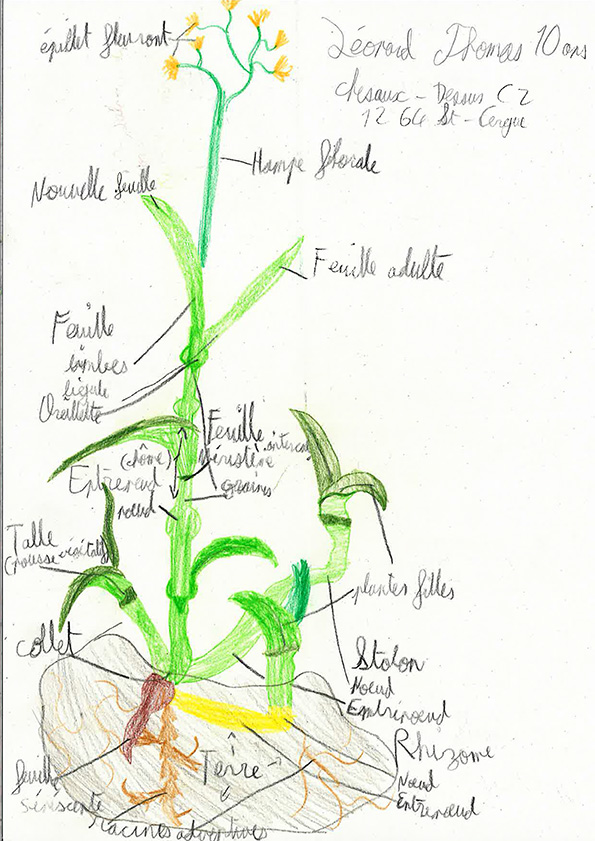 épillet fleuront
Léonard Thomas 10 ans
chesaux - Dessus C2
1264 St-Cergue
Hampe florale
Nouvelle feuille
Feuille adulte
Feuille
limbes
ligule
Oreillette
Feuille
(chôme)
Entrenoeud
gaines
noeud
Talle
(pousse végétatif)
plantes filles
collet
Stolon
Noeud
Entrenoeud
Rhizome
Terre
Noeud
Entrenoeud
feuille
Sénescente
racines adventives